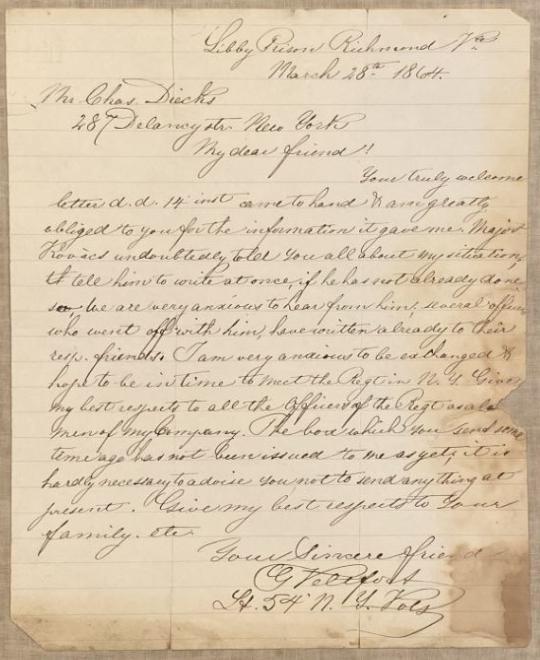 Libby Prison Richmond Va
March 28th 1864.
Mr. Chas. Diecks
287 Delancy str. New York
My dear friend!
Your truly welcome
letter d.d. 14 inst came to hand & am greatly
obliged to you for the information it gave me. Major
Kovács undoubtedly told you all about my situation,
tell him to write at once, if he has not already done
so we are very anxious to hear from him, several officers
who went off with him, have written already to their
resp. friends. I am very anxious to be exchanged &
hope to be in time to meet the Regt in N. Y. Give
my best respects to all the Officers of the Regt as also
men of my Company. The box which you send some
time ago has not been issued to me as yet, it is
hardly necessary to advise you not to send anything at
present. Give my best respects to Your
family. etc
Your Sincere friend
Lt. 54 N. Y. Vols